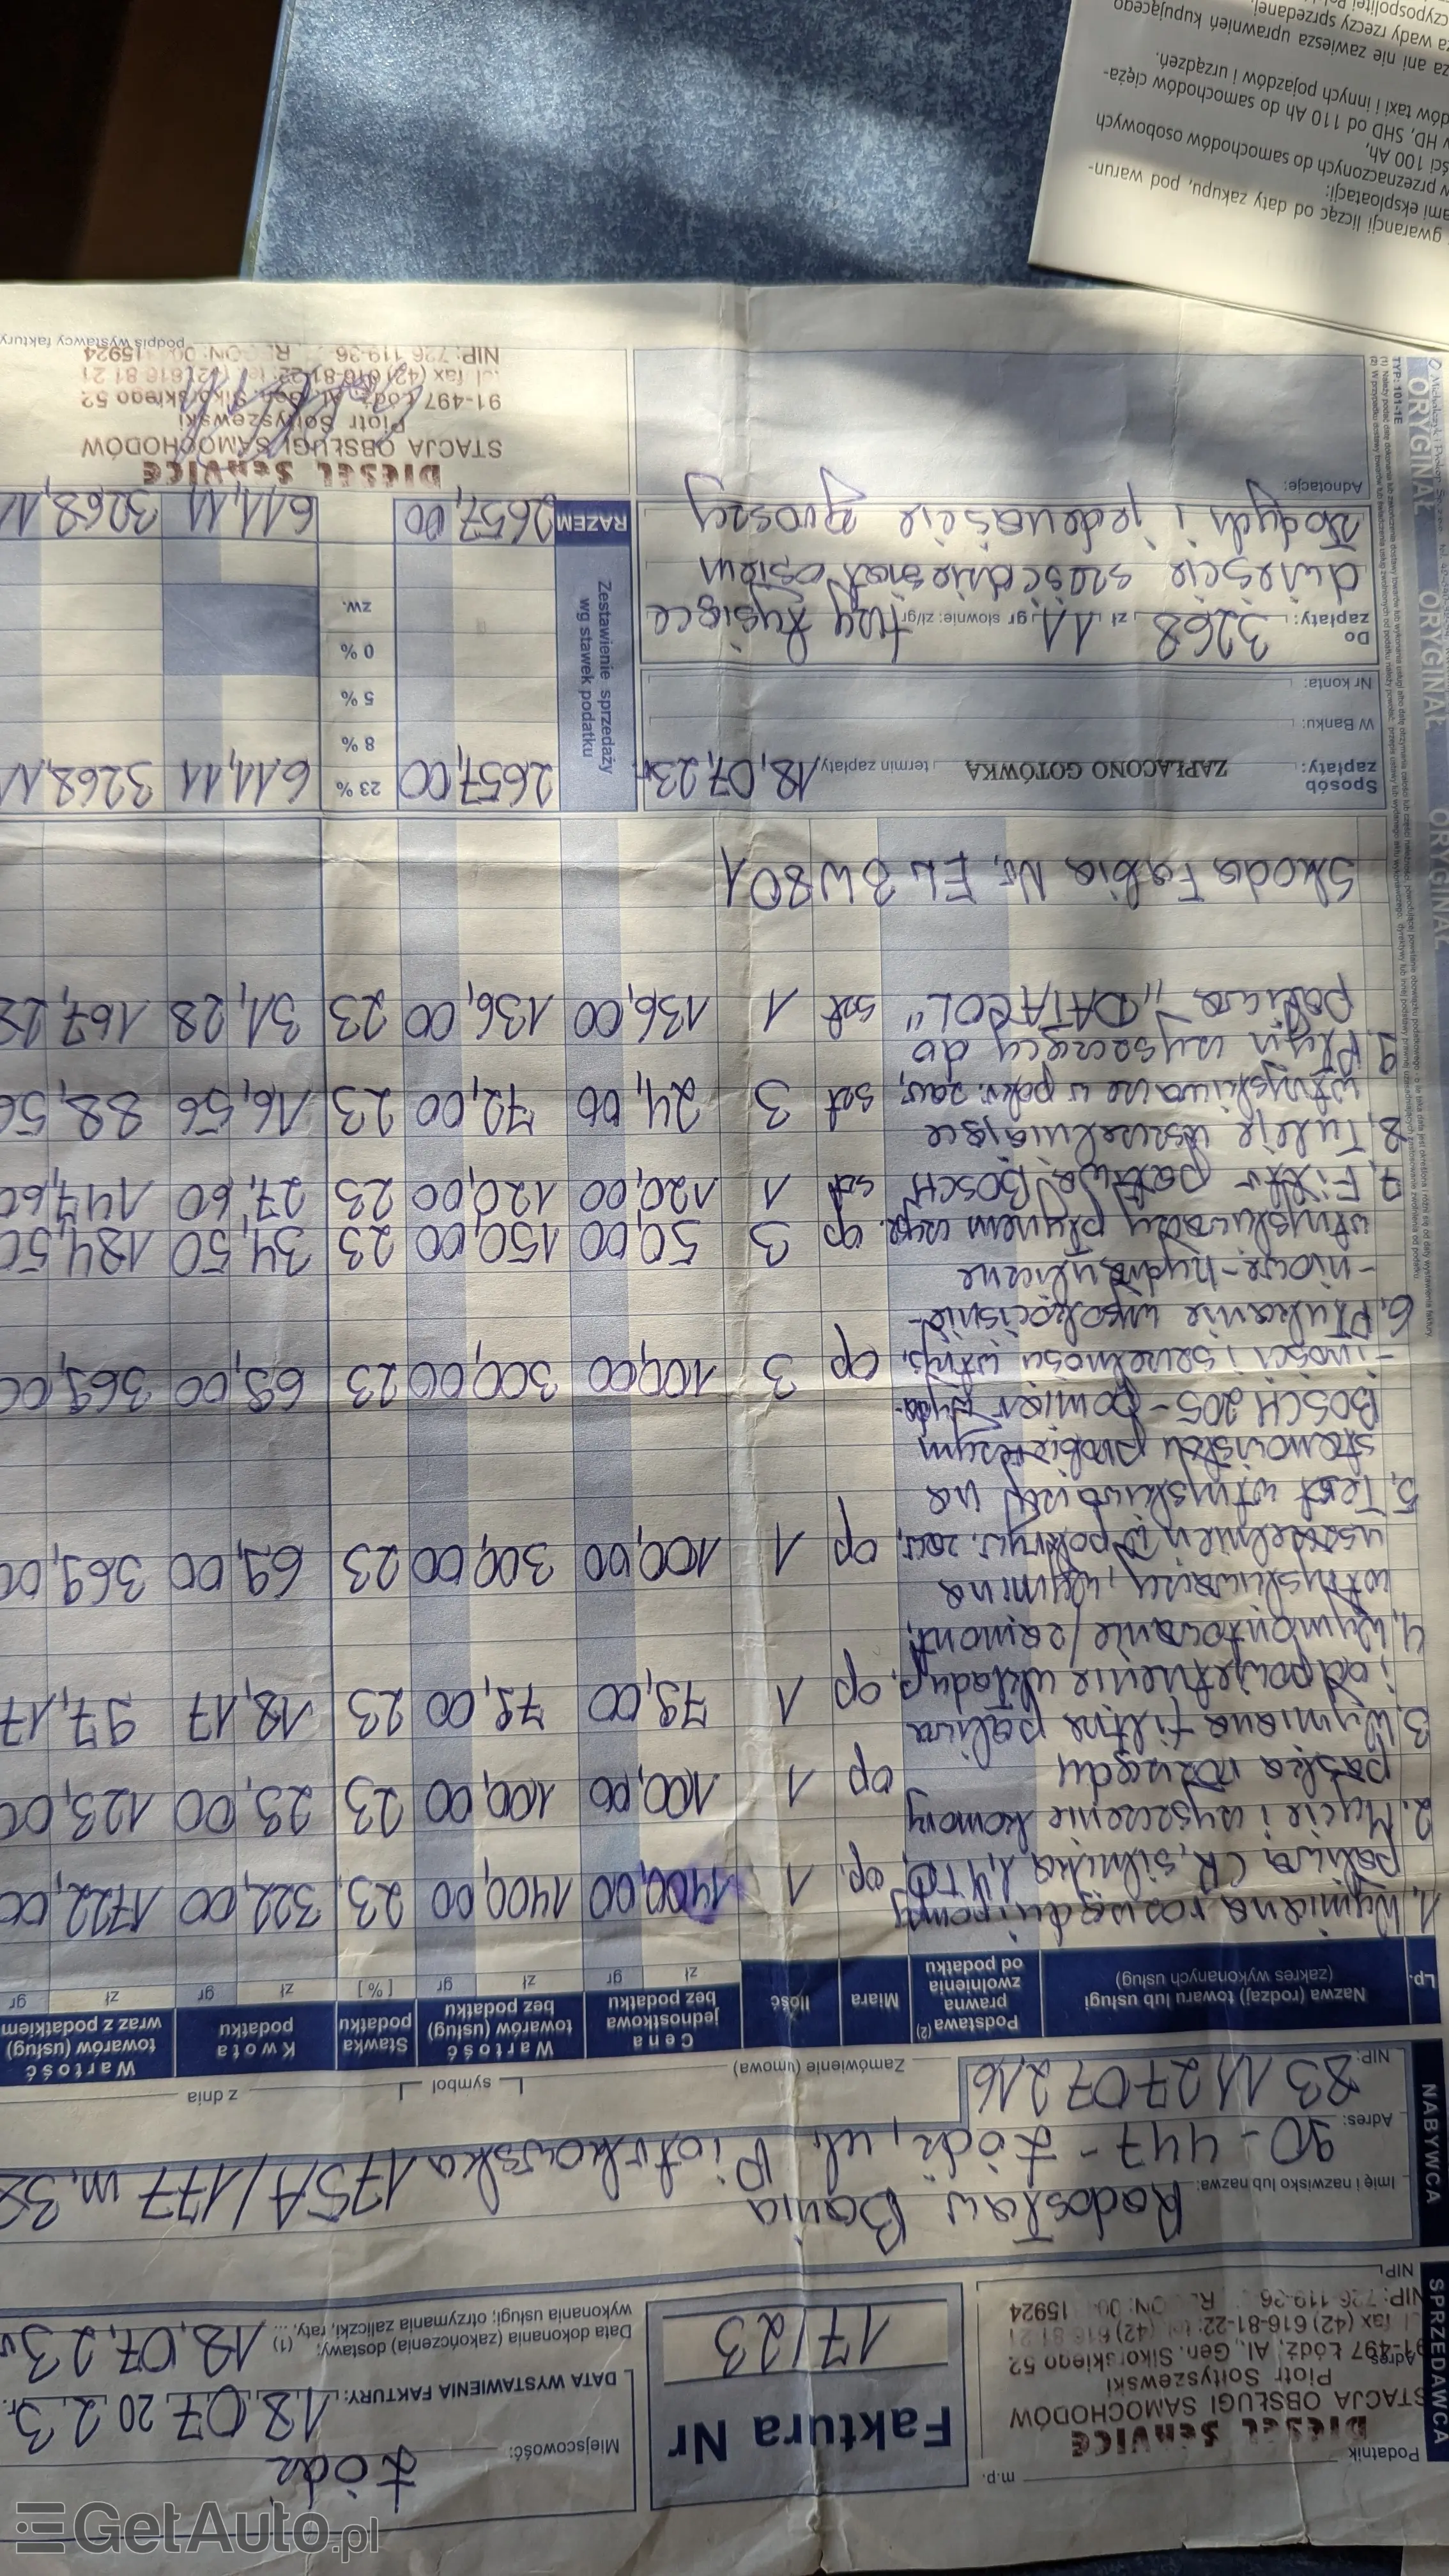 Podatnik
m.p.
DIESEL SERVICE
STACJA OBSŁUGI SAMOCHODÓW
Piotr Sołtyszewski
91-497 Łódź, Al. Gen. Sikorskiego 52
fax (42) 616-81-22; tel. (42) 616 81 21
NIP: 726-119-36
15924
SPRZEDAWCA
Faktura Nr
17/23
Miejscowość:
Łódź
DATA WYSTAWIENIA FAKTURY:
18,07,2023r.
Data dokonania (zakończenia) dostawy; (1)
wykonania usługi; otrzymania zaliczki, raty, ...
18,07,23r
NABYWCA
Imię i nazwisko lub nazwa:
Radosław Bania
Adres:
90-447-Łódź, ul. Piotrkowska 175A/177 m,32
NIP:
83112707216
Zamówienie (umowa)
symbol
z dnia
Lp.
Nazwa (rodzaj) towaru lub usługi
(zakres wykonanych usług)
Podstawa (2)
prawna
zwolnienia
od podatku
Miara
Ilość
Cena
jednostkowa
bez podatku
zł gr
Wartość
towarów (usług)
bez podatku
zł gr
Stawka
podatku
[%]
Kwota
podatku
zł gr
Wartość
towarów (usług)
wraz z podatkiem
zł gr
1. Wymiana rozrządu i pompy
paliwa CR, silnika 1,4 TDI, op. 1 1400,00 1400,00 23 322,00 1722,00
2. Mycie i czyszczenie komory
paska rozrządu op 1 100,00 100,00 23 23,00 123,00
3. Wymiana filtra paliwa
i odpowietrzenie układu p. op 1 79,00 79,00 23 18,17 97,17
4. Wymontowanie/zamont.
wtryskiwaczy, wymiana
uszczelnień w pokryw. zaw, op 1 100,00 300,00 23 69,00 369,00
5. Test wtryskiwaczy na
stanowisku probierczym
BOSCH 205-pomiar wyda-
-jności i szczelności wtrys. op 3 100,00 300,00 23 69,00 369,00
6. Płukanie wysokociśnie-
-niowe-hydrauliczne
wtryskiwaczy płynem czyszc. op 3 50,00 150,00 23 34,50 184,50
7. Filtr paliwa BOSCH szt 1 120,00 120,00 23 27,60 147,60
8. Tuleje uszczelniające
wtryskiwacze w pokr. zaw, szt 3 24,00 72,00 23 16,56 88,56
9. Płyn czyszczący do
paliwa „DATACOL" szt 1 136,00 136,00 23 31,28 167,28
Skoda Fabia Nr. EL 3W801
Sposób
zapłaty:
ZAPŁACONO GOTÓWKĄ
termin zapłaty
18,07,23r.
W Banku:
Nr konta:
Do
zapłaty:
3268 zł 11 gr słownie: zł/gr trzy tysiące
dwieście sześćdziesiąt osiem
złotych i jedenaście groszy
Adnotacje:
Zestawienie sprzedaży
wg stawek podatku
2657,00 23 % 611,11 3268,11
8 %
5 %
0 %
zw.
RAZEM
2657,00 611,11 3268,11
DIESEL SERVICE
STACJA OBSŁUGI SAMOCHODÓW
Piotr Sołtyszewski
91-497 Łódź, Al. Gen. Sikorskiego 52
fax (42) 616-81-22; tel. (42) 616 81 21
NIP: 726 119-36
15924
podpis wystawcy faktury
TYP: 101-1E
ORYGINAŁ ORYGINAŁ ORYGINAŁ
gwarancji licząc od daty zakupu, pod warun-
ami eksploatacji:
w przeznaczonych do samochodów osobowych
ści 100 Ah,
w HD, SHD od 110 Ah do samochodów cięża-
dów taxi i innych pojazdów i urządzeń.
za ani nie zawiesza uprawnień kupującego
za wady rzeczy sprzedanej.
GetAuto.pl